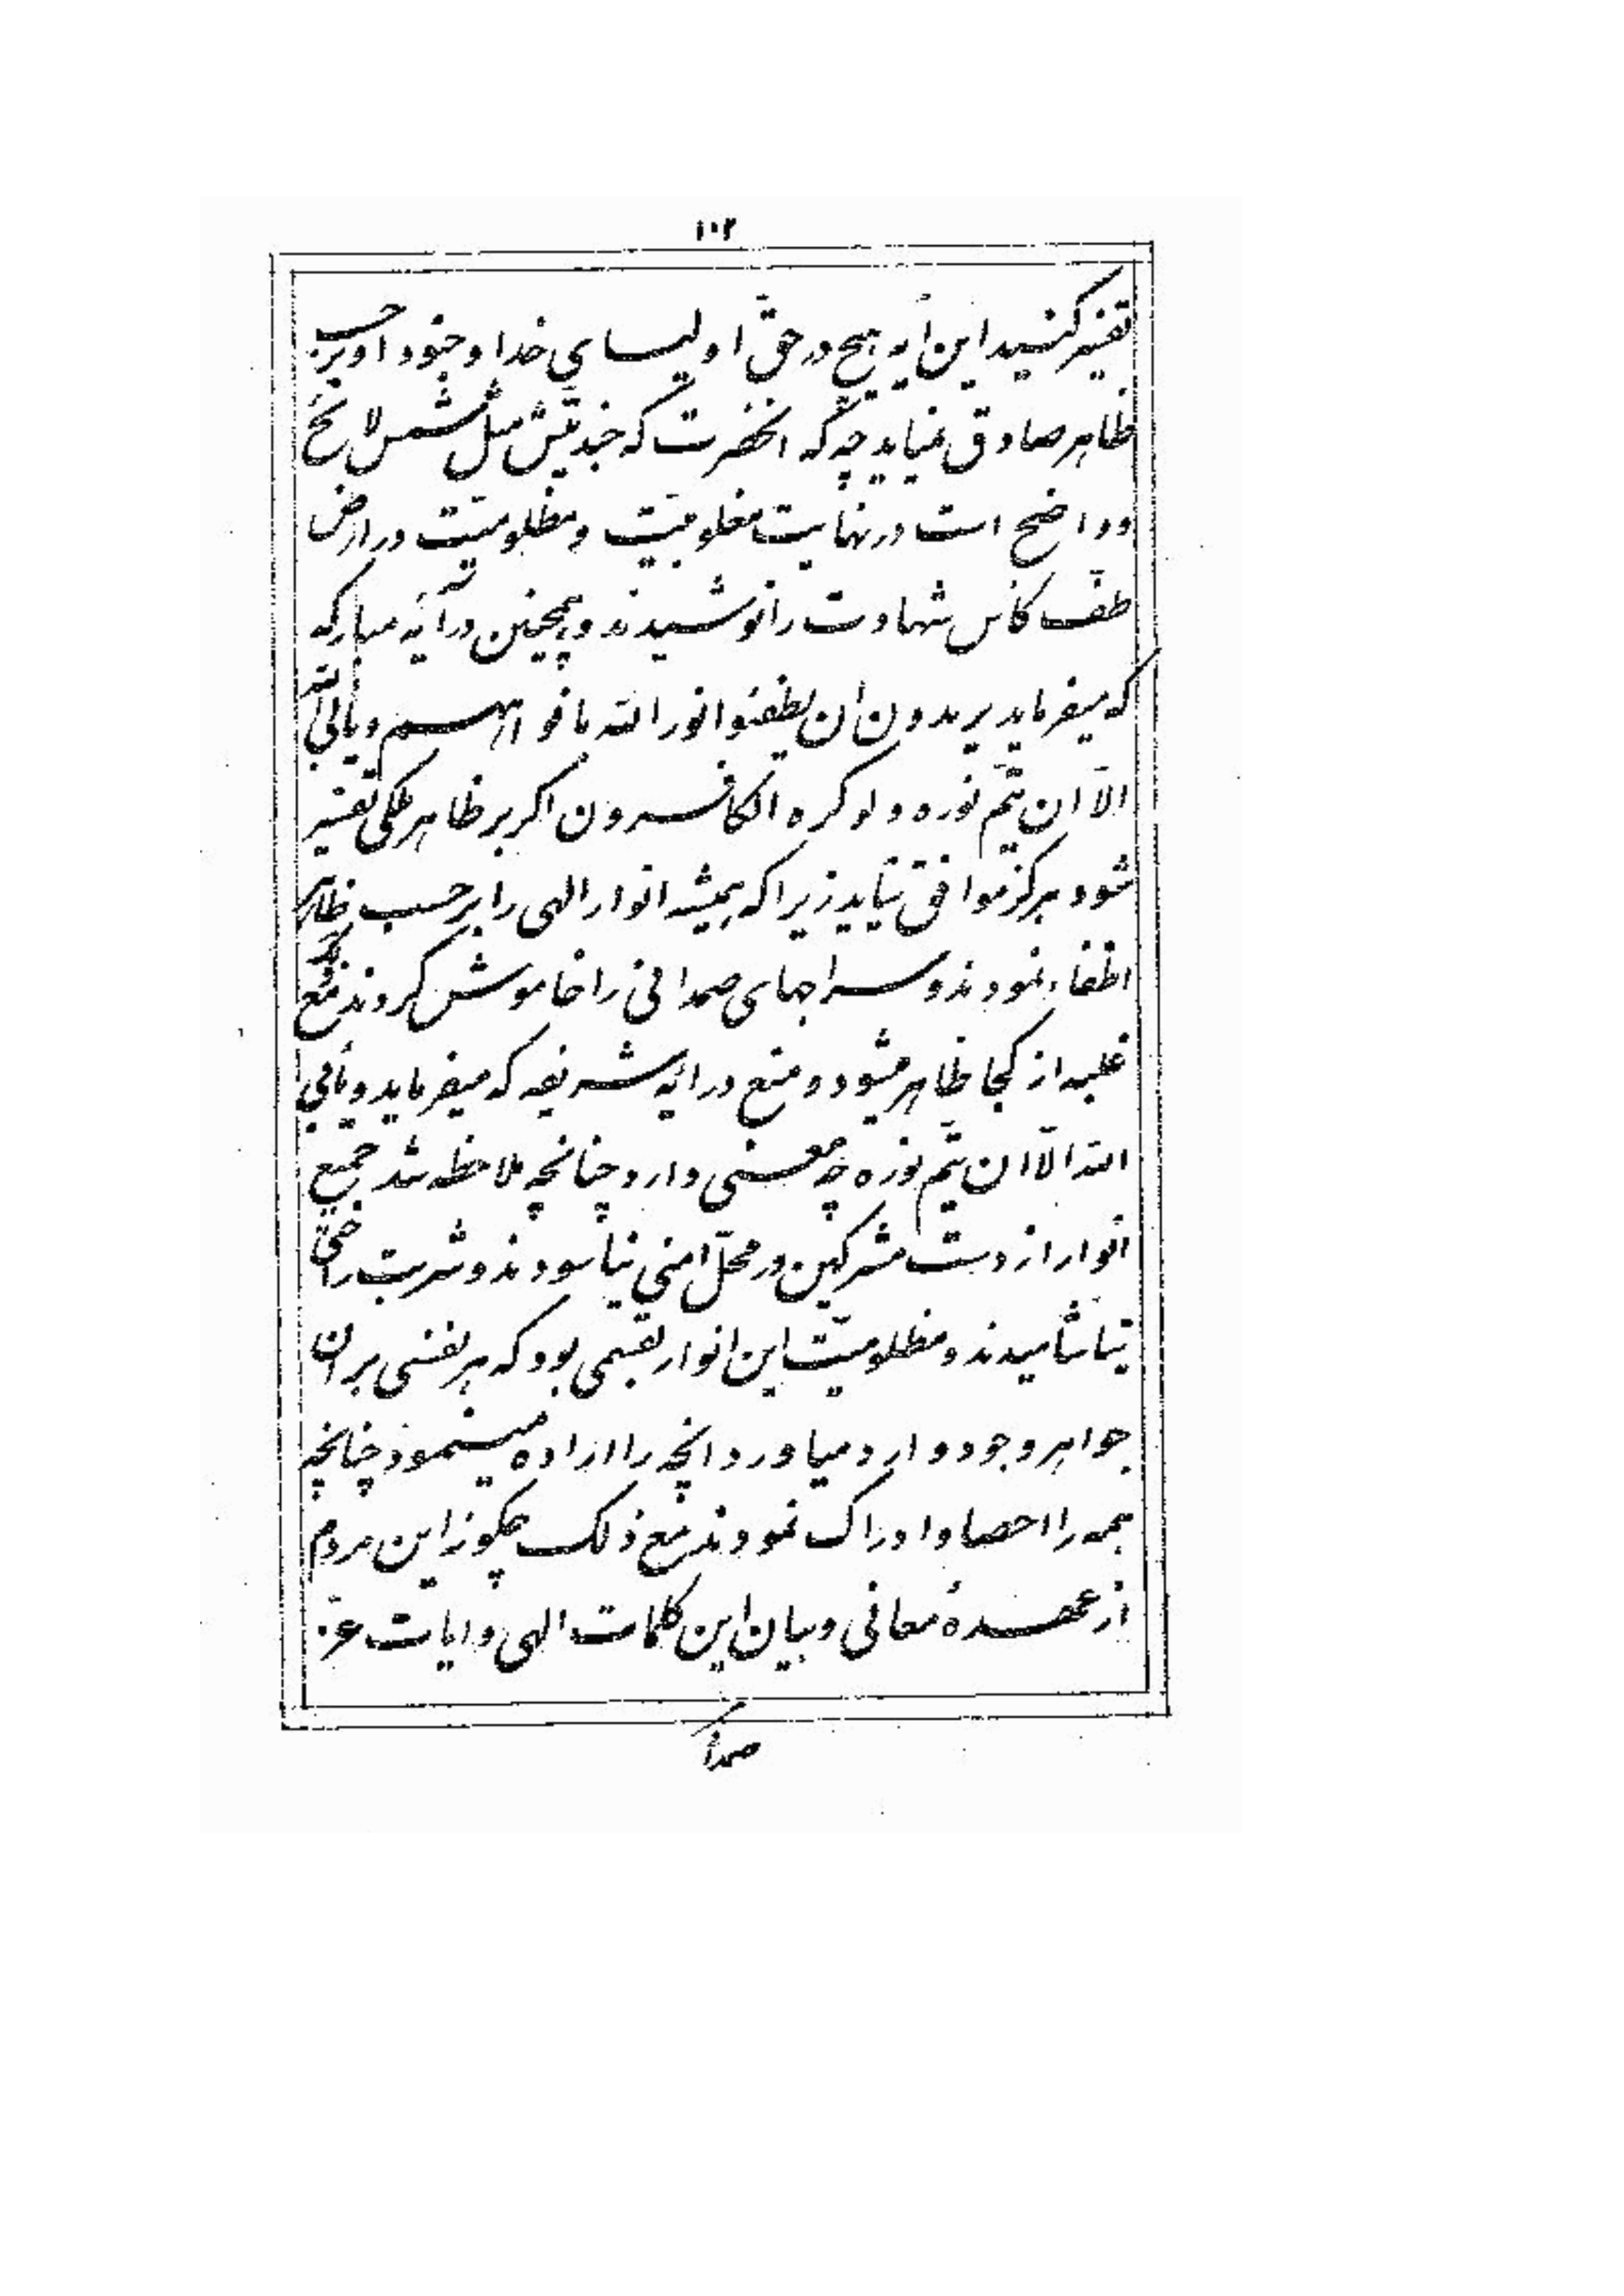 ۱۰۲
تفسیر کنید این آیه هیچ در حقّ اولیسای خدا و جنود او بر حسب
ظاهر صادق نمیاید چه که انحضرت که جندیّتش مثل شمس لائح
و واضح است در نهایت مغلوبیّت و مظلومیّت در ارض
طفّ کأس شهادت را نوشیدند و همچنین در آیه مبارکه
که میفرماید یریدون ان یطفئوا نور الله بافواههم و یأبی الله
الّا ان یتمّ نوره و لو کره الکافرون اگر بر ظاهر ملکی تفسیر
شود هرگز موافق نیاید زیرا که همیشه انوار الهی را بر حسب ظاهر
اطفاء نمودند و سراجهای صمدانی را خاموش کردند مع ذلک
غلبه از کجا ظاهر میشود و منع در ایه شریفه که میفرماید و یأبی
الله الّا ان یتمّ نوره چه معنی دارد چنانچه ملاحظه شد جمیع
انوار از دست مشرکین در محلّ امنی نیاسودند و شربت راحتی
نیاشامیدند و مظلومیّت این انوار بقسمی بود که هر نفسی بر ان
جواهر وجود وارد میاورد انچه را اراده مینمود چنانچه
همه را احصا و ادراک نمودند مع ذلک چگونه این مردم
از عهدهٔ معانی و بیان این کلمات الهی و ایات عزّ
صمدا